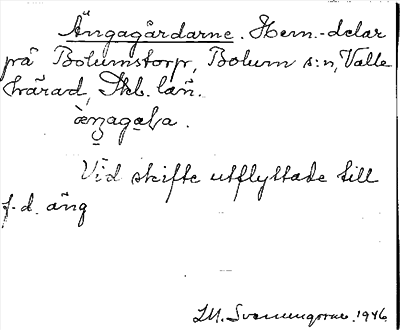 Ängagårdarne. Hem.-delar
på Bolumstorp, Bolum s:n, Valle
härad, Skb. län.
Vid skifte utflyttade till
f.d. äng
1946